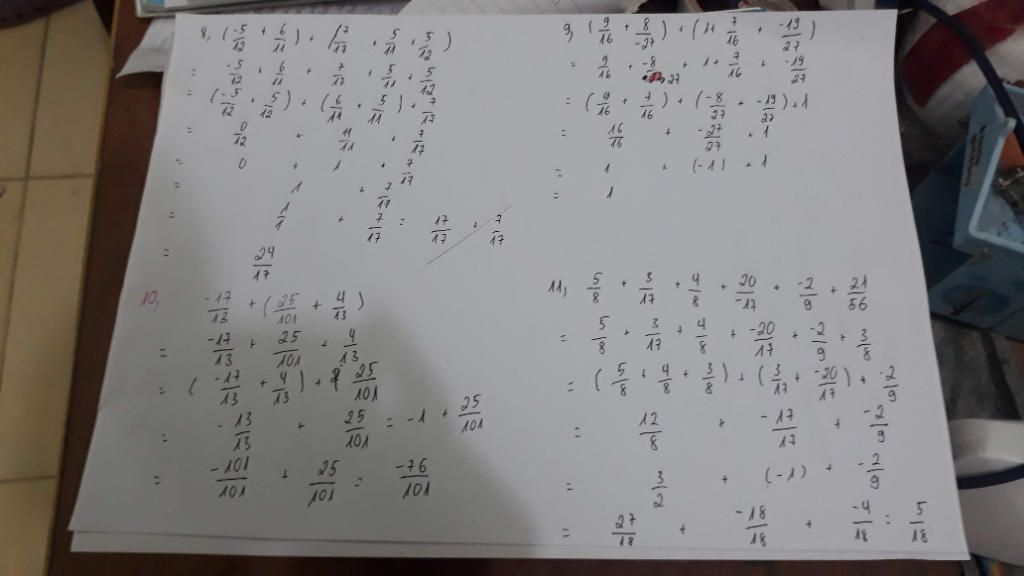 8, (-5/12 + 6/11) + (7/17 + 5/11 + 5/12)
= -5/12 + 6/11 + 7/17 + 5/11 + 5/12
= (-5/12 + 5/12) + (6/11 + 5/11) + 7/17
= 0/12 + 11/11 + 7/17
= 0 + 1 + 7/17
= 1 + 7/17
= 1/1 + 7/17 = 17/17 + 7/17
= 24/17
9, (9/16 + 8/-27) + (1+ 7/16 + -19/27)
= 9/16 + -8/27 + 1 + 7/16 + -19/27
= (9/16 + 7/16) + (-8/27 + -19/27) + 1
= 16/16 + -27/27 + 1
= 1 + (-1) + 1
= 1
10, -17/13 + (25/101 + 4/13)
= -17/13 + 25/101 + 4/13
= (-17/13 + 4/13) + 25/101
= -13/13 + 25/101 = -1 + 25/101
= -101/101 + 25/101 = -76/101
11, 5/8 + 3/17 + 4/8 + 20/-17 + -2/9 + 21/56
= 5/8 + 3/17 + 4/8 + -20/17 + -2/9 + 3/8
= (5/8 + 4/8 + 3/8) + (3/17 + -20/17) + -2/9
= 12/8 + -17/17 + -2/9
= 3/2 + (-1) + -2/9
= 27/18 + -18/18 + -4/18 = 5/18